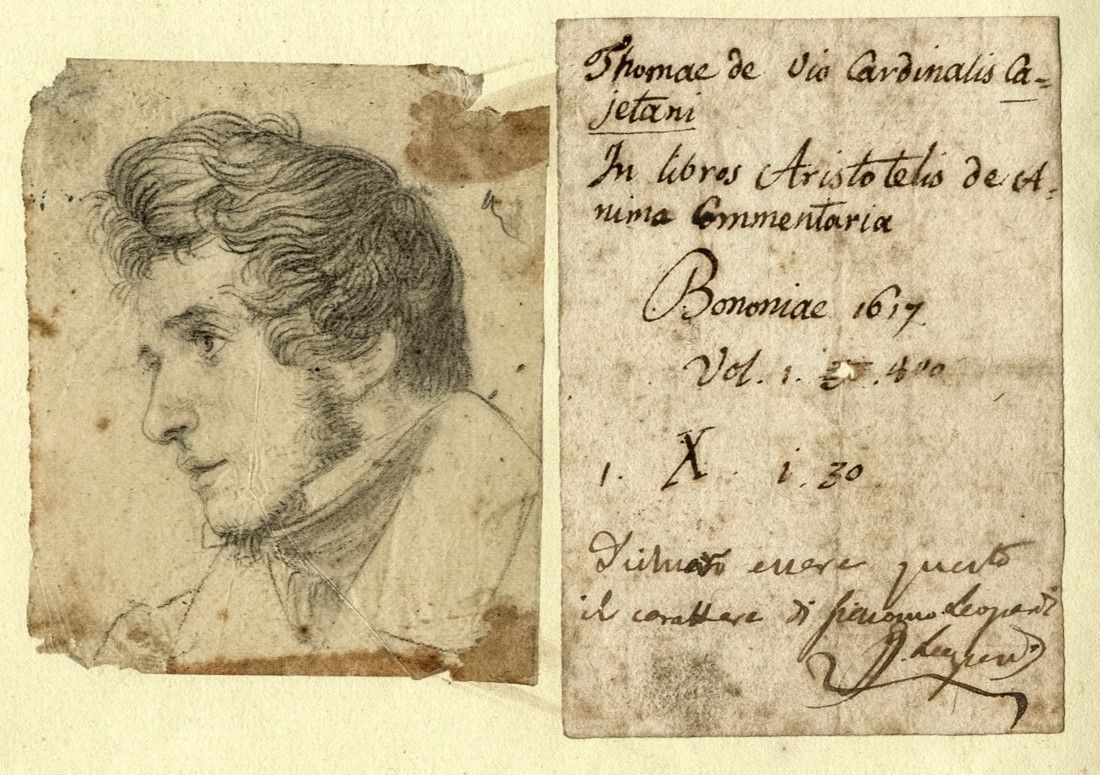 Thomae de Vio Cardinalis Ca-
jetani
In libros Aristotelis de A-
nima Commentaria
Bononiae 1617
Vol. 1. 400
1. X. i. 30
Dichiaro essere questo
il carattere di Giacomo Leopardi